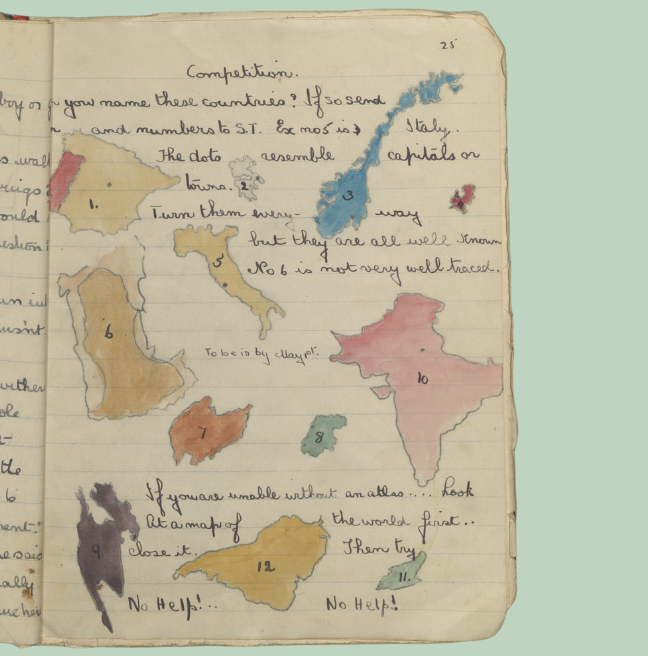 25
Competition.
boy or you name these countries? If so send
and numbers to S.T. Ex no 5 is Italy.
The dots resemble capitals or
towns.
Turn them every-way
but they are all well known
No 6 is not very well traced.
To be in by May 1st.
If you are unable without an atlas.... Look
At a map of the world first..
close it. Then try
No Help!.. No Help!
1.
2
3
5
6
7
8
9
10
11.
12